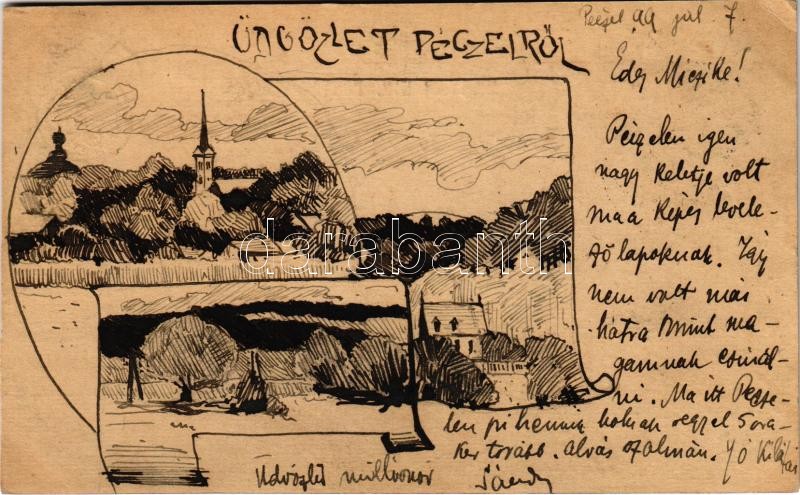 ÜDVÖZLET PÉCZELRŐL
Péczel 99 júl. 7.
Edes Miczike!
Péczelen igen
nagy keletje volt
ma a képes levele-
ző lapoknak. Így
nem volt más
hátra mint ma-
gamnak csinál-
ni. Ma itt Pécze-
len pihenünk holnap reggel 5 óra-
kor tovább.
Üdvözlet Sándor
darabanth